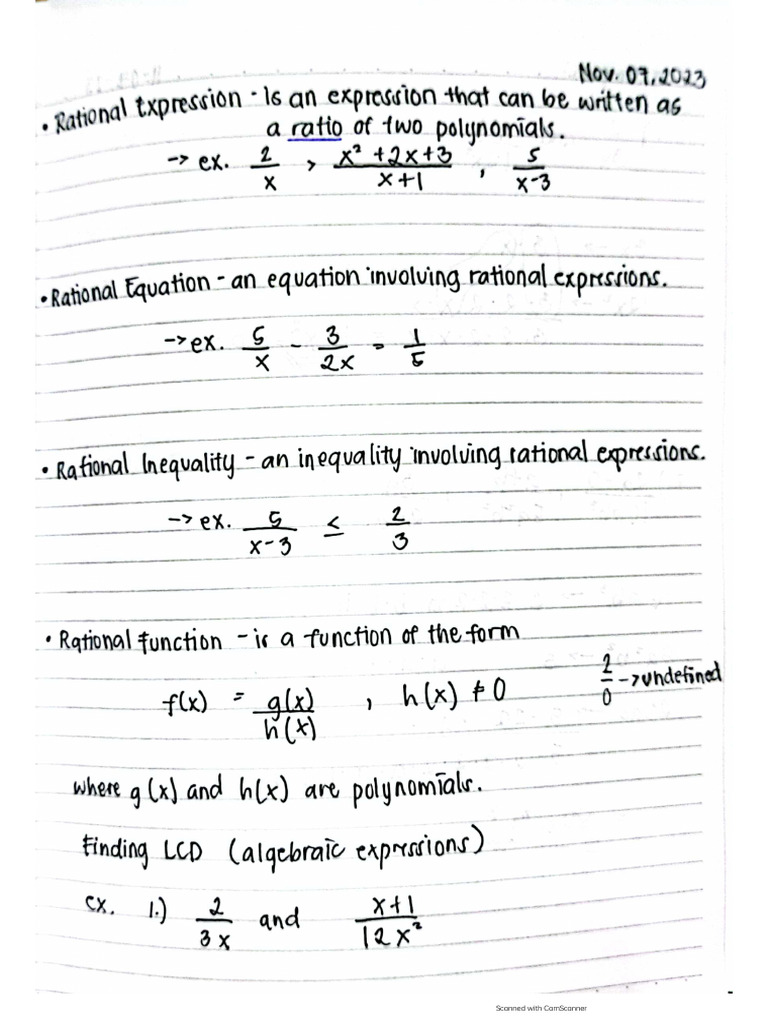 Nov. 07, 2023
• Rational Expression - Is an expression that can be written as
a ratio of two polynomials.
-> ex. 2/x , x² + 2x + 3/x + 1 , 5/x - 3
• Rational Equation - an equation involving rational expressions.
-> ex. 5/x - 3/2x = 1/5
• Rational Inequality - an inequality involving rational expressions.
-> ex. 5/x - 3 ≤ 2/3
• Rational function - is a function of the form
f(x) = g(x)/h(x) , h(x) ≠ 0 2/0 -> undefined
where g(x) and h(x) are polynomials.
Finding LCD (algebraic expressions)
ex. 1.) 2/3x and x + 1/12x²
Scanned with CamScanner